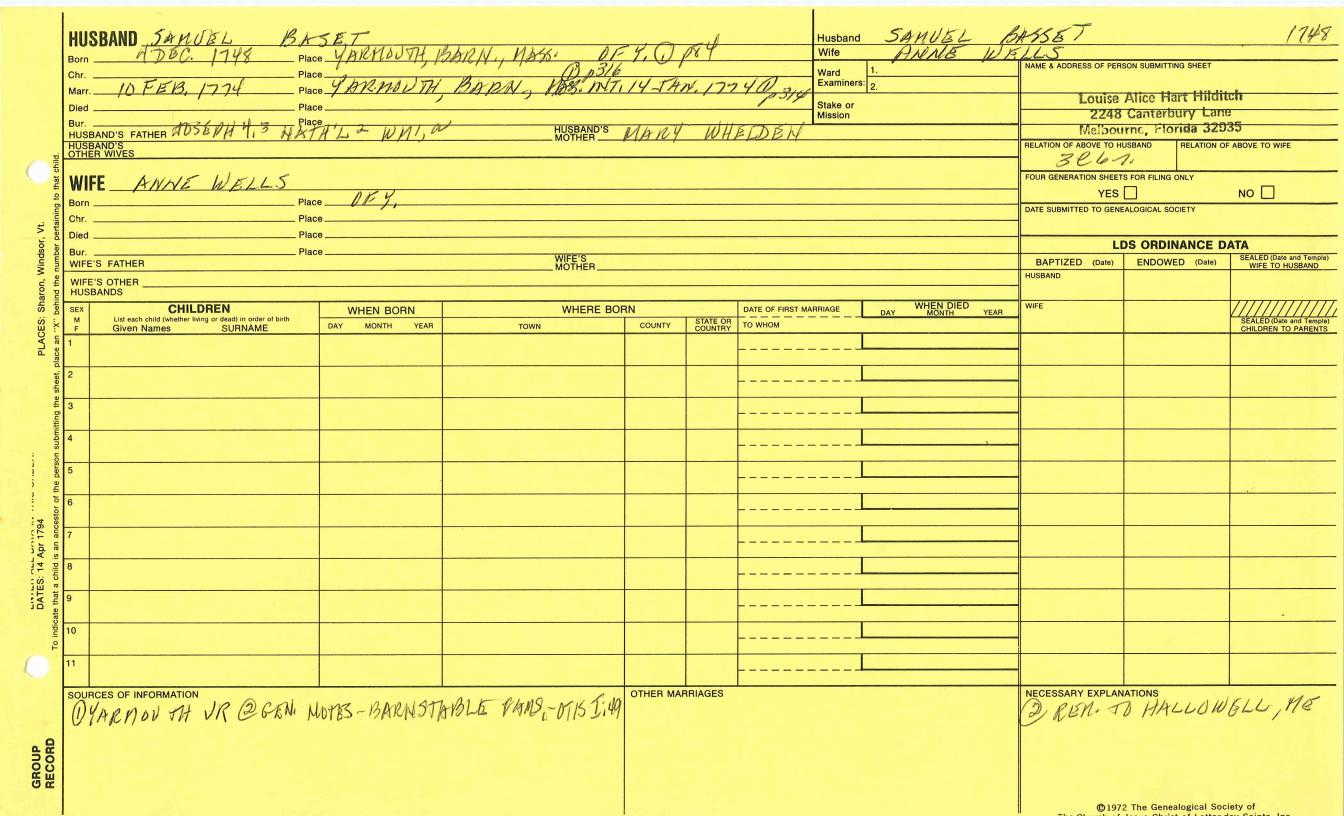 HUSBAND SAMUEL BASET
Born 7 DEC. 1748 Place YARMOUTH, BARN., MASS. OF Y. ① p84
Chr. Place ① p316
Marr. 10 FEB. 1774 Place YARMOUTH, BARN., INT. 14 JAN. 1774 ① p314
Died Place
Bur. Place
HUSBAND'S FATHER JOSEPH 4, 3 NATH'L 2 WM1, HUSBAND'S MOTHER MARY WHELDEN
HUSBAND'S OTHER WIVES
Husband SAMUEL BASSET 1748
Wife ANNE WELLS
Ward Examiners: 1.
2.
Stake or Mission
NAME & ADDRESS OF PERSON SUBMITTING SHEET
Louise Alice Hart Hilditch
2248 Canterbury Lane
Melbourne, Florida 32935
RELATION OF ABOVE TO HUSBAND RELATION OF ABOVE TO WIFE
FOUR GENERATION SHEETS FOR FILING ONLY
YES NO
DATE SUBMITTED TO GENEALOGICAL SOCIETY
WIFE ANNE WELLS
Born Place OF Y.
Chr. Place
Died Place
Bur. Place
WIFE'S FATHER WIFE'S MOTHER
WIFE'S OTHER HUSBANDS
LDS ORDINANCE DATA
BAPTIZED (Date) ENDOWED (Date) SEALED (Date and Temple) WIFE TO HUSBAND
HUSBAND
WIFE
SEALED (Date and Temple) CHILDREN TO PARENTS
SEX M F
CHILDREN
List each child (whether living or dead) in order of birth
Given Names SURNAME
WHEN BORN
DAY MONTH YEAR
WHERE BORN
TOWN COUNTY STATE OR COUNTRY
DATE OF FIRST MARRIAGE
TO WHOM
WHEN DIED
DAY MONTH YEAR
1
2
3
4
5
6
7
8
9
10
11
SOURCES OF INFORMATION
① YARMOUTH VR ② GEN. NOTES-BARNSTABLE FAMS.-OTIS I:49
OTHER MARRIAGES
NECESSARY EXPLANATIONS
② REM. TO HALLOWELL, ME
©1972 The Genealogical Society of
The Church of Jesus Christ of Latter-day Saints, Inc.
PLACES: Sharon, Windsor, Vt.
DATES: 14 Apr 1794
To indicate that a child is an ancestor of the person submitting the sheet, place an "X" behind the number pertaining to that child.
GROUP RECORD